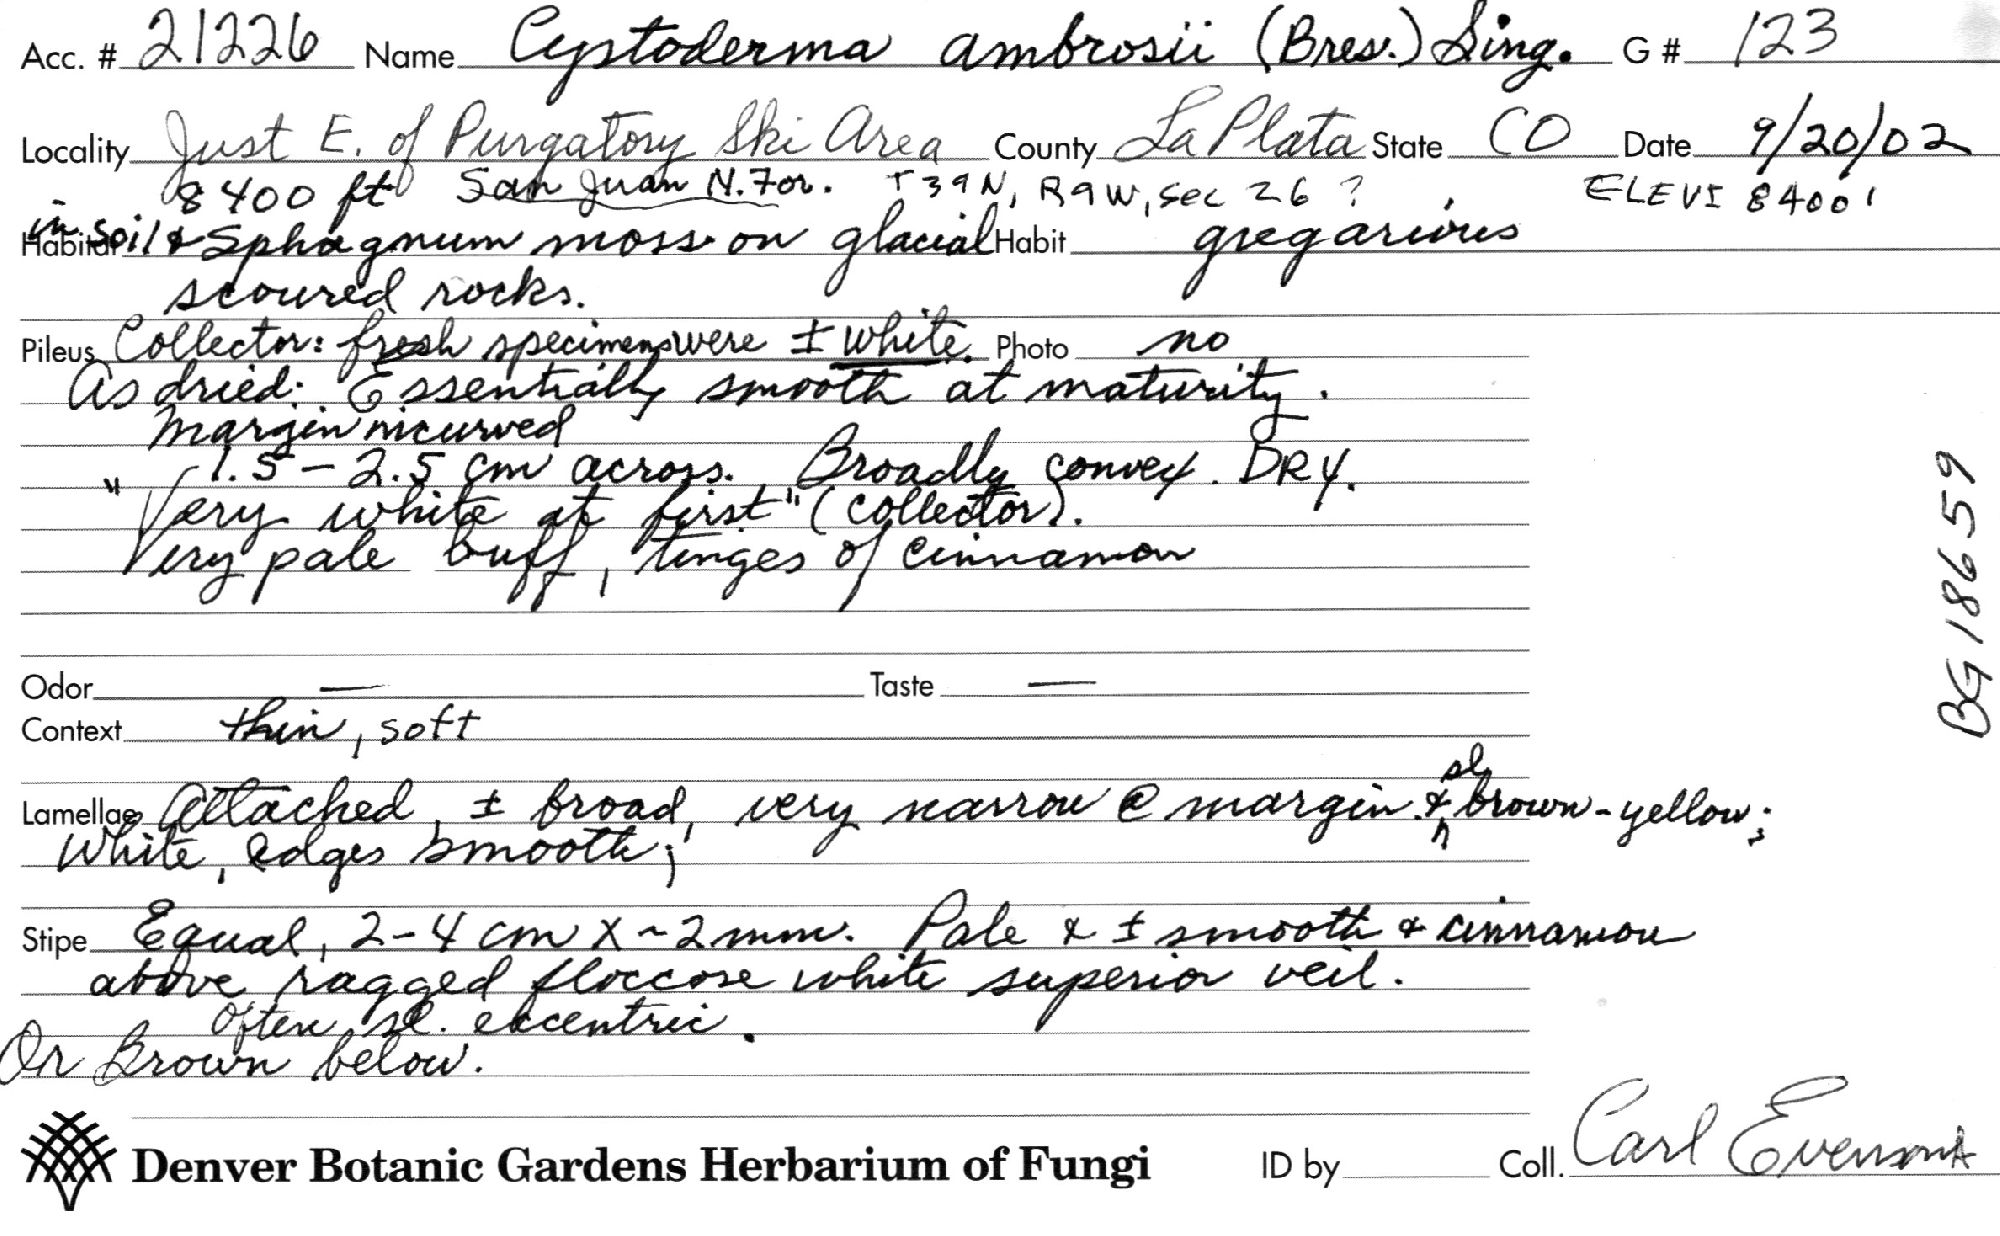 Acc. # 21226 Name Cystoderma ambrosii (Bres.) Sing. G # 123
Locality Just E. of Purgatory Ski Area County La Plata State CO Date 9/20/02
8400 ft San Juan N. For. T39N, R9W, Sec 26 ? ELEV 8400'
Habitat in soil & Sphagnum moss on glacial Habit gregarious
scoured rocks.
Pileus Collector: fresh specimens were ± white. Photo no
As dried: Essentially smooth at maturity.
Margin incurved
1.5 – 2.5 cm across. Broadly convex. DRY.
"Very white at first" (collector).
Very pale buff, tinges of cinnamon
Odor — Taste —
Context thin, soft
Lamellae Attached, ± broad, very narrow @ margin & sl brown-yellow;
White, edges smooth;
Stipe Equal, 2–4 cm x ~2mm. Pale & ± smooth & cinnamon
above ragged floccose white superior veil.
Often sl. excentric.
Or Brown below.
Denver Botanic Gardens Herbarium of Fungi ID by Coll. Carl Evenson
BG18659